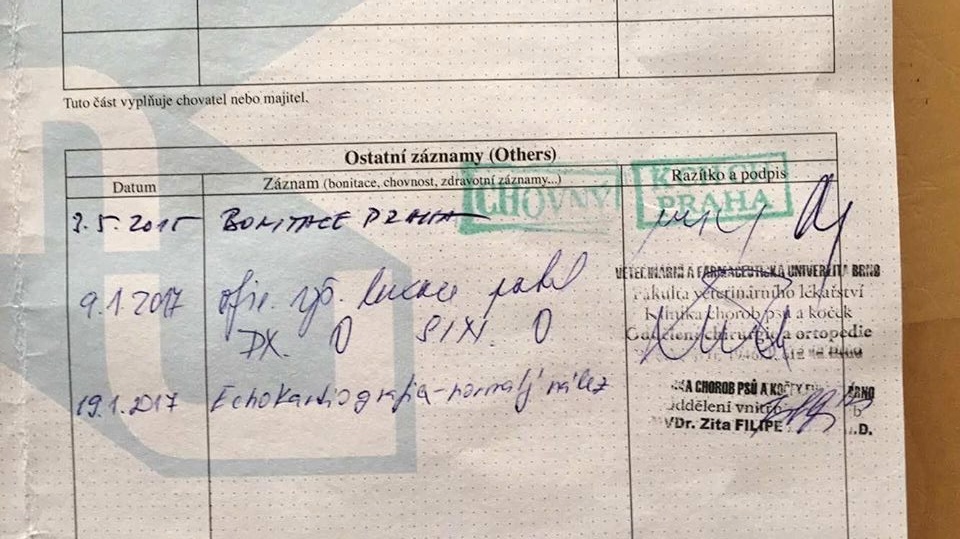 Tuto část vyplňuje chovatel nebo majitel.
Ostatní záznamy (Others)
Datum Záznam (bonitace, chovnost, zdravotní záznamy...) Razítko a podpis
CHOVNÝ
PRAHA
3.5.2015 BONITACE PRAHA
9.1.2017 ofic. vyš. luxace patel
DX. 0 SIN. 0
VETERINÁRNÍ A FARMACEUTICKÁ UNIVERZITA BRNO
Fakulta veterinárního lékařství
Klinika chorob psů a koček
Oddělení chirurgie a ortopedie
19.1.2017 Echokardiografia-normalý nález
CHOROB PSŮ A KOČEK BRNO
Oddělení
MVDr. Zita FILIPE